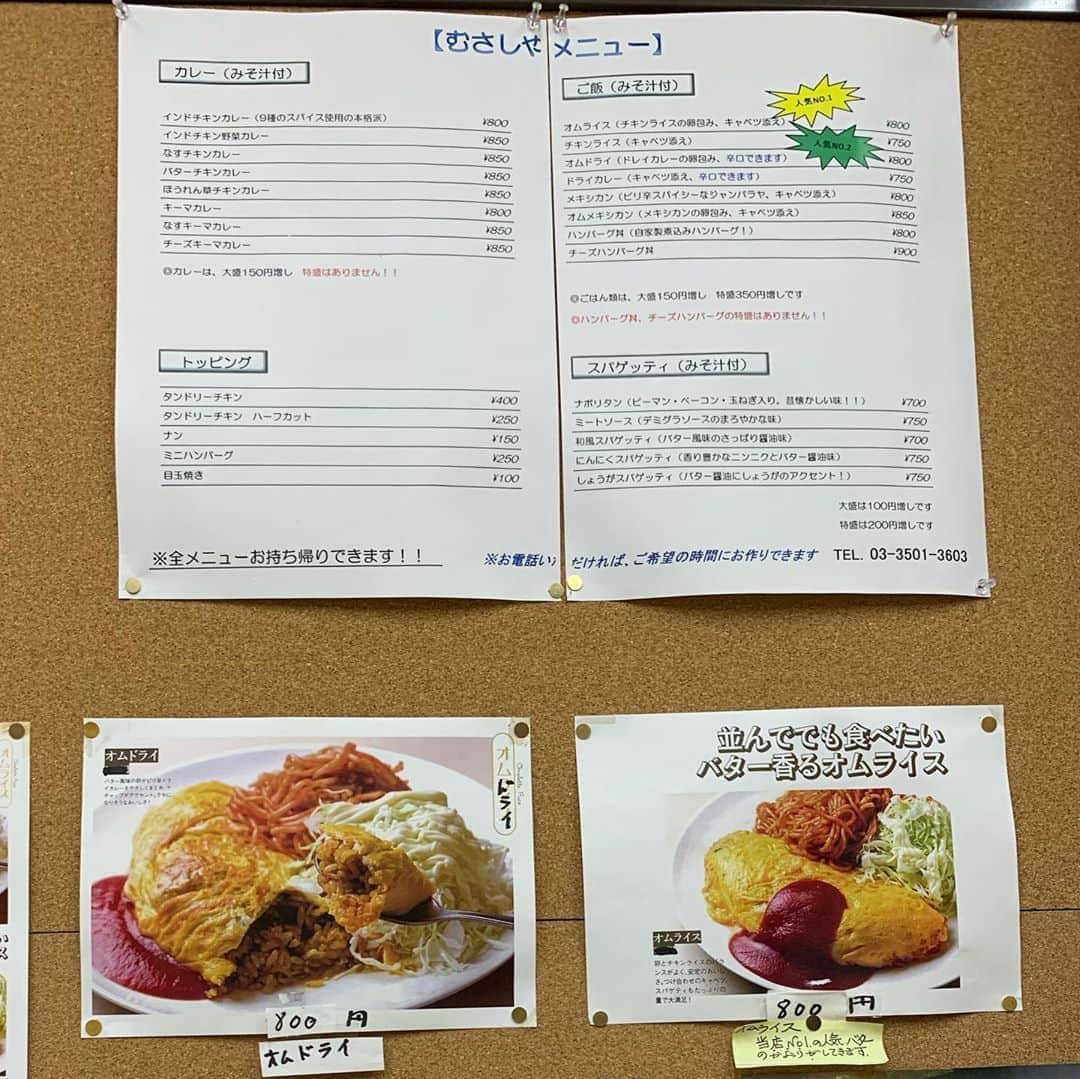 【むさしや メニュー】
カレー（みそ汁付）
インドチキンカレー（9種のスパイス使用の本格派） ¥800
インドチキン野菜カレー ¥850
なすチキンカレー ¥850
バターチキンカレー ¥850
ほうれん草チキンカレー ¥850
キーマカレー ¥800
なすキーマカレー ¥850
チーズキーマカレー ¥850
◎カレーは、大盛150円増し 特盛はありません！！
トッピング
タンドリーチキン ¥400
タンドリーチキン ハーフカット ¥250
ナン ¥150
ミニハンバーグ ¥250
目玉焼き ¥100
※全メニューお持ち帰りできます！！
ご飯（みそ汁付）
人気NO.1
人気NO.2
オムライス（チキンライスの卵包み、キャベツ添え） ¥800
チキンライス（キャベツ添え） ¥750
オムドライ（ドレイカレーの卵包み、辛口できます） ¥800
ドライカレー（キャベツ添え、辛口できます） ¥750
メキシカン（ピリ辛スパイシーなジャンバラヤ、キャベツ添え） ¥800
オムメキシカン（メキシカンの卵包み、キャベツ添え） ¥850
ハンバーグ丼（自家製煮込みハンバーグ！） ¥800
チーズハンバーグ丼 ¥900
◎ごはん類は、大盛150円増し 特盛350円増しです
◎ハンバーグ丼、チーズハンバーグの特盛はありません！！
スパゲッティ（みそ汁付）
ナポリタン（ピーマン・ベーコン・玉ねぎ入り。昔懐かしい味！！） ¥700
ミートソース（デミグラソースのまろやかな味） ¥750
和風スパゲッティ（バター風味のさっぱり醤油味） ¥700
にんにくスパゲッティ（香り豊かなニンニクとバター醤油味） ¥750
しょうがスパゲッティ（バター醤油にしょうがのアクセント！） ¥750
大盛は100円増しです
特盛は200円増しです
※お電話い だければ、ご希望の時間にお作りできます TEL. 03-3501-3603
オムドライ
オムドライ
800 円
オムドライ
並んででも食べたい
バター香るオムライス
オムライス
卵とチキンライスのバラ
ンスがよく、安定のおいし
さ。つけ合わせのキャベツ、
スパゲティもたっぷりの
量で大満足！
800 円
オムライス
当店No1.の人気
オムライス